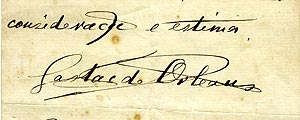 consideração e estima.
Gastão de Orleans